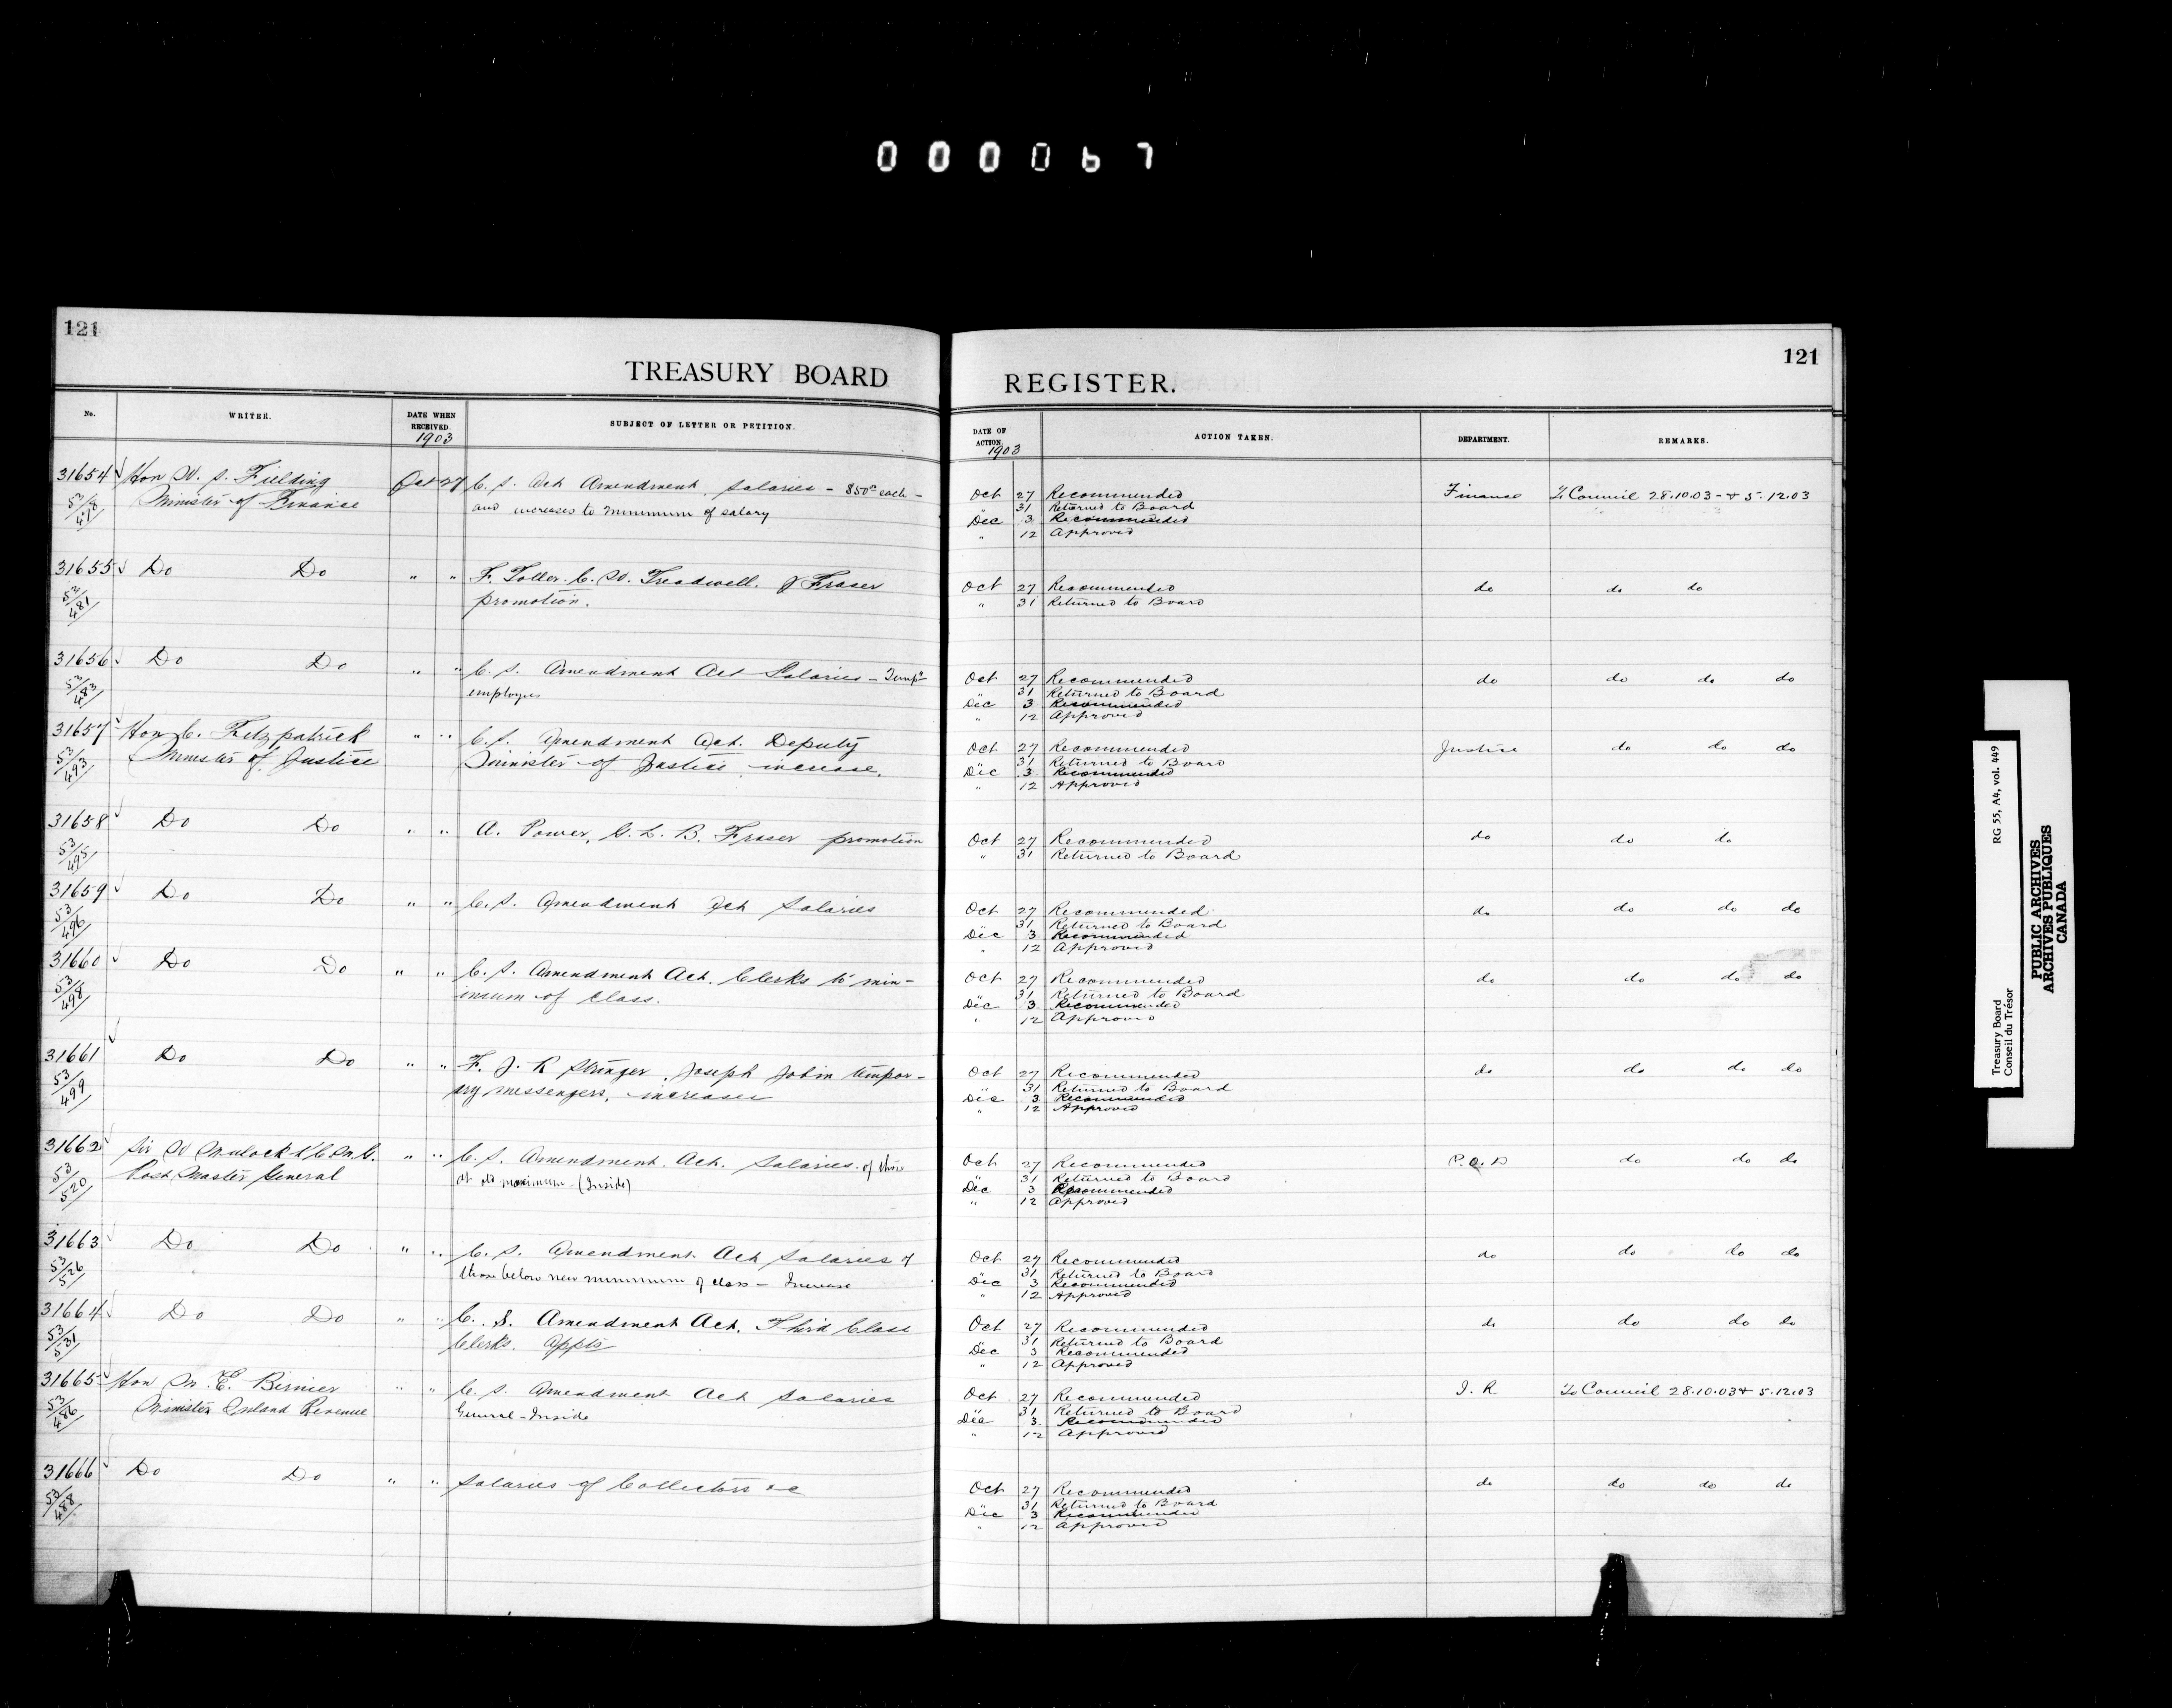 000067
121
TREASURY BOARD
REGISTER.
121
No.
WRITER.
DATE WHEN RECEIVED.
1903
SUBJECT OF LETTER OR PETITION.
DATE OF ACTION.
1903
ACTION TAKEN.
DEPARTMENT.
REMARKS.
31654 Hon W. S. Fielding Oct 27 C. S. Act Amendment. Salaries - $50.00 each -
53/478 Minister of Finance and increases to minimum of salary
Oct 27 Recommended Finance To Council 28.10.03 - & 5.12.03
" 31 Returned to Board
Dec 3 Recommended
" 12 Approved
31655 Do Do " " F. Toller. C. W. Treadwell. J Fraser
53/481 promotion.
Oct 27 Recommended do do do
" 31 Returned to Board
31656 Do Do " " C. S. Amendment Act Salaries - Tempy
53/483 employes
Oct 27 Recommended do do do do
" 31 Returned to Board
Dec 3 Recommended
" 12 Approved
31657 Hon C. Fitzpatrick " " C. S. Amendment Act. Deputy
53/493 Minister of Justice Minister of Justice increase.
Oct 27 Recommended Justice do do do
" 31 Returned to Board
Dec 3 Recommended
" 12 Approved
31658 Do Do " " A. Power, G. L. B. Fraser promotion
53/495
Oct 27 Recommended do do do
" 31 Returned to Board
31659 Do Do " " C. S. Amendment Act Salaries
53/496
Oct 27 Recommended do do do do
31 Returned to Board
Dec 3 Recommended
" 12 Approved
31660 Do Do " " C. S. Amendment Act. Clerks to min-
53/498 imum of Class.
Oct 27 Recommended do do do do
" 31 Returned to Board
Dec 3 Recommended
" 12 Approved
31661 Do Do " " F. J. R Stringer, Joseph Jobin tempor-
53/499 ary messengers, increases
Oct 27 Recommended do do do do
" 31 Returned to Board
Dec 3 Recommended
" 12 Approved
31662 Sir W Mulock K.C.M.G. " " C. S. Amendment Act. Salaries of those
53/520 Post Master General at old maximum - (Inside)
Oct 27 Recommended P.O.D do do do
" 31 Returned to Board
Dec 3 Recommended
" 12 Approved
31663 Do Do " " C. S. Amendment Act Salaries of
53/526 those below new minimum of class - Increase
Oct 27 Recommended do do do do
" 31 Returned to Board
Dec 3 Recommended
" 12 Approved
31664 Do Do " " C. S. Amendment Act. Third Class
53/531 Clerks. Appts
Oct 27 Recommended do do do do
" 31 Returned to Board
Dec 3 Recommended
" 12 Approved
31665 Hon M. E. Bernier " " C. S. Amendment Act Salaries
53/486 Minister Inland Revenue General - Inside
Oct 27 Recommended I. R To Council 28.10.03 & 5.12.03
" 31 Returned to Board
Dec 3 Recommended
" 12 Approved
31666 Do Do " " Salaries of Collectors &c
53/488
Oct 27 Recommended do do do do
" 31 Returned to Board
Dec 3 Recommended
" 12 Approved
Treasury Board
Conseil du Trésor
RG 55, A4, vol. 449
PUBLIC ARCHIVES
ARCHIVES PUBLIQUES
CANADA